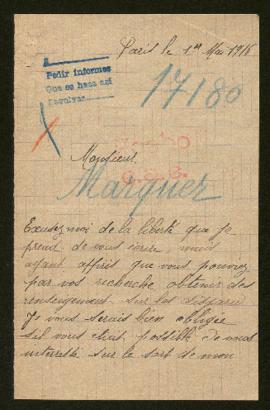 Paris le 1er Mai 1916
Pedir informes
Que se haga así
17180
Monsieur
Marquez
Excusez moi de la liberté que je
prend de vous écrire mais
ayant appris que vous pouviez
par vos recherche obtenir des
renseignement sur les disparu
Je vous serais bien obligée
sil vous était possible de vous
interressé sur le sort de mon